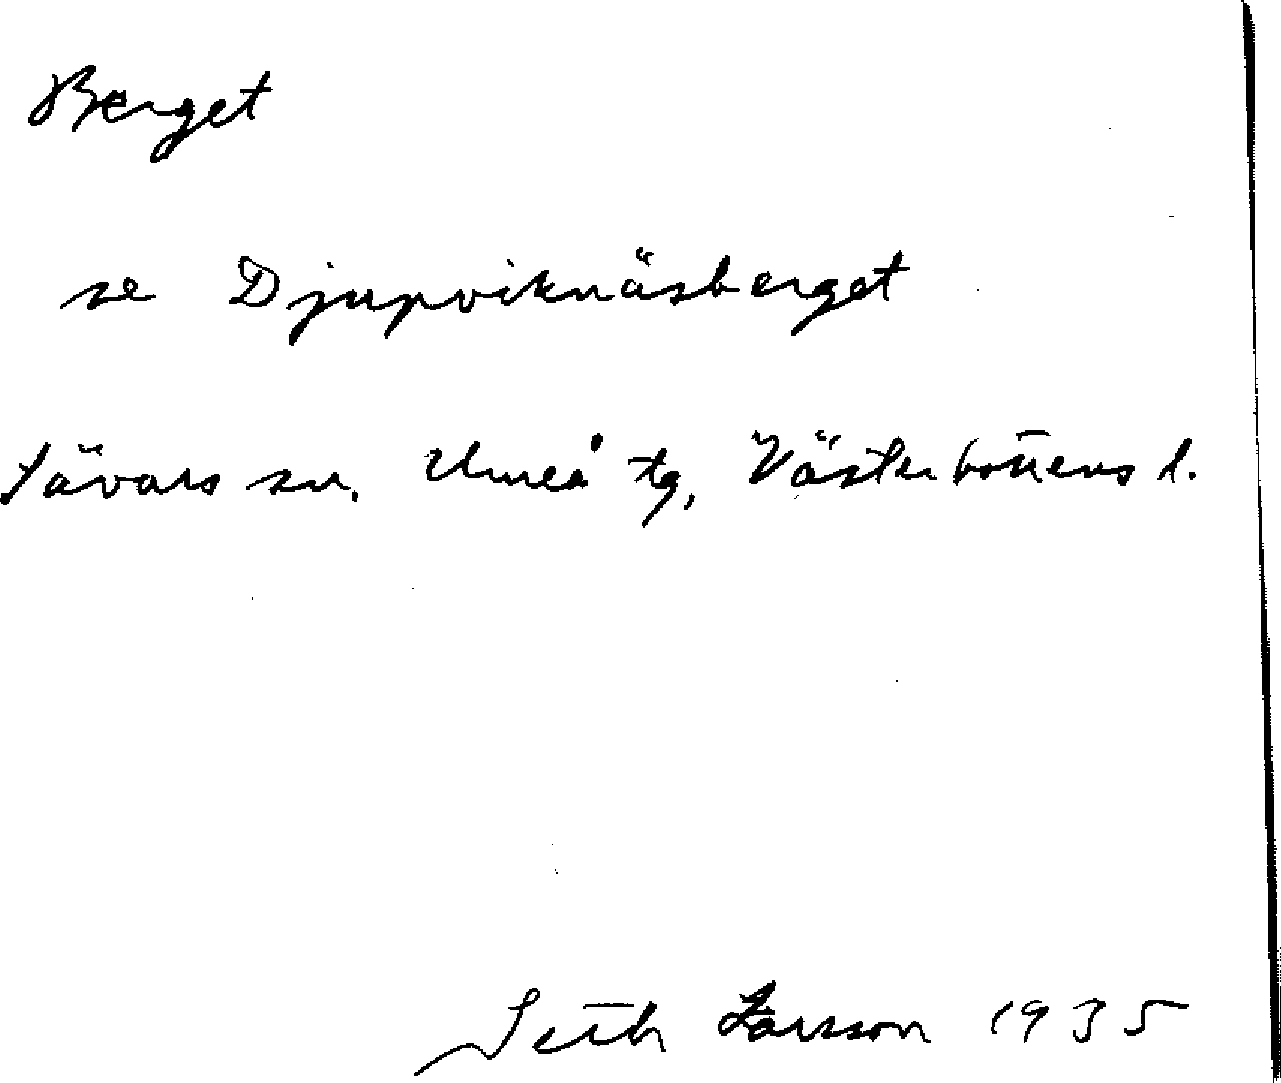 Berget
se Djupviknäsberget
Sävars sn. Umeå tg, Västerbottens l.
Seth Larsson 1935